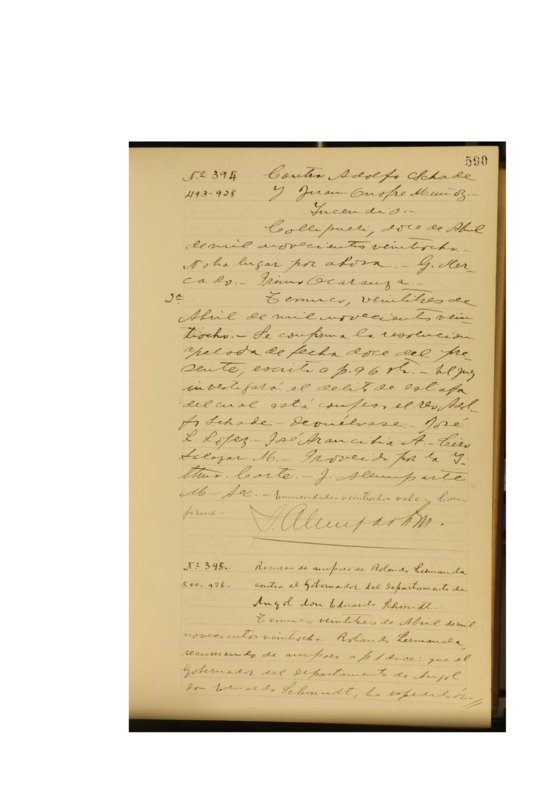 590
Nº 394 Contra Adolfo Schade
493-928 y Juan Onofre Muñoz.-
Incendio.-
Collipulli, doce de Abril
de mil novecientos veintiocho.-
No ha lugar por ahora.- G. Mer-
cado.- Ocaranza.-
2ª Temuco, veintitres de
Abril de mil novecientos vein-
tiocho.- Se confirma la resolucion
apelada de fecha doce del pre-
sente, escrita a f. 96 vta.- El juez
investigará el delito de estafa
del cual está confeso el reo Adol-
fo Schade.- Devuélvase.- José
L. Lopez.- José Arancibia A.- Ciro
Salazar M.- Proveido por la I-
ltma. Corte.- J. Alemparte
M.- Sec.- Enmendado-veintiocho-vale.- Con-
forme.-
J. Alemparte M.
Nº 395. Recurso de amparo de Rolando Lermanda
500-928. contra el Gobernador del departamento de
Angol don Eduardo Schmidt.-
Temuco veintitres de Abril de mil
novecientos veintiocho. Rolando Lermanda,
recurriendo de amparo a f. 1 dice: que el
Gobernador del departamento de Angol
don Eduardo Schmidt, ha expedido ór-